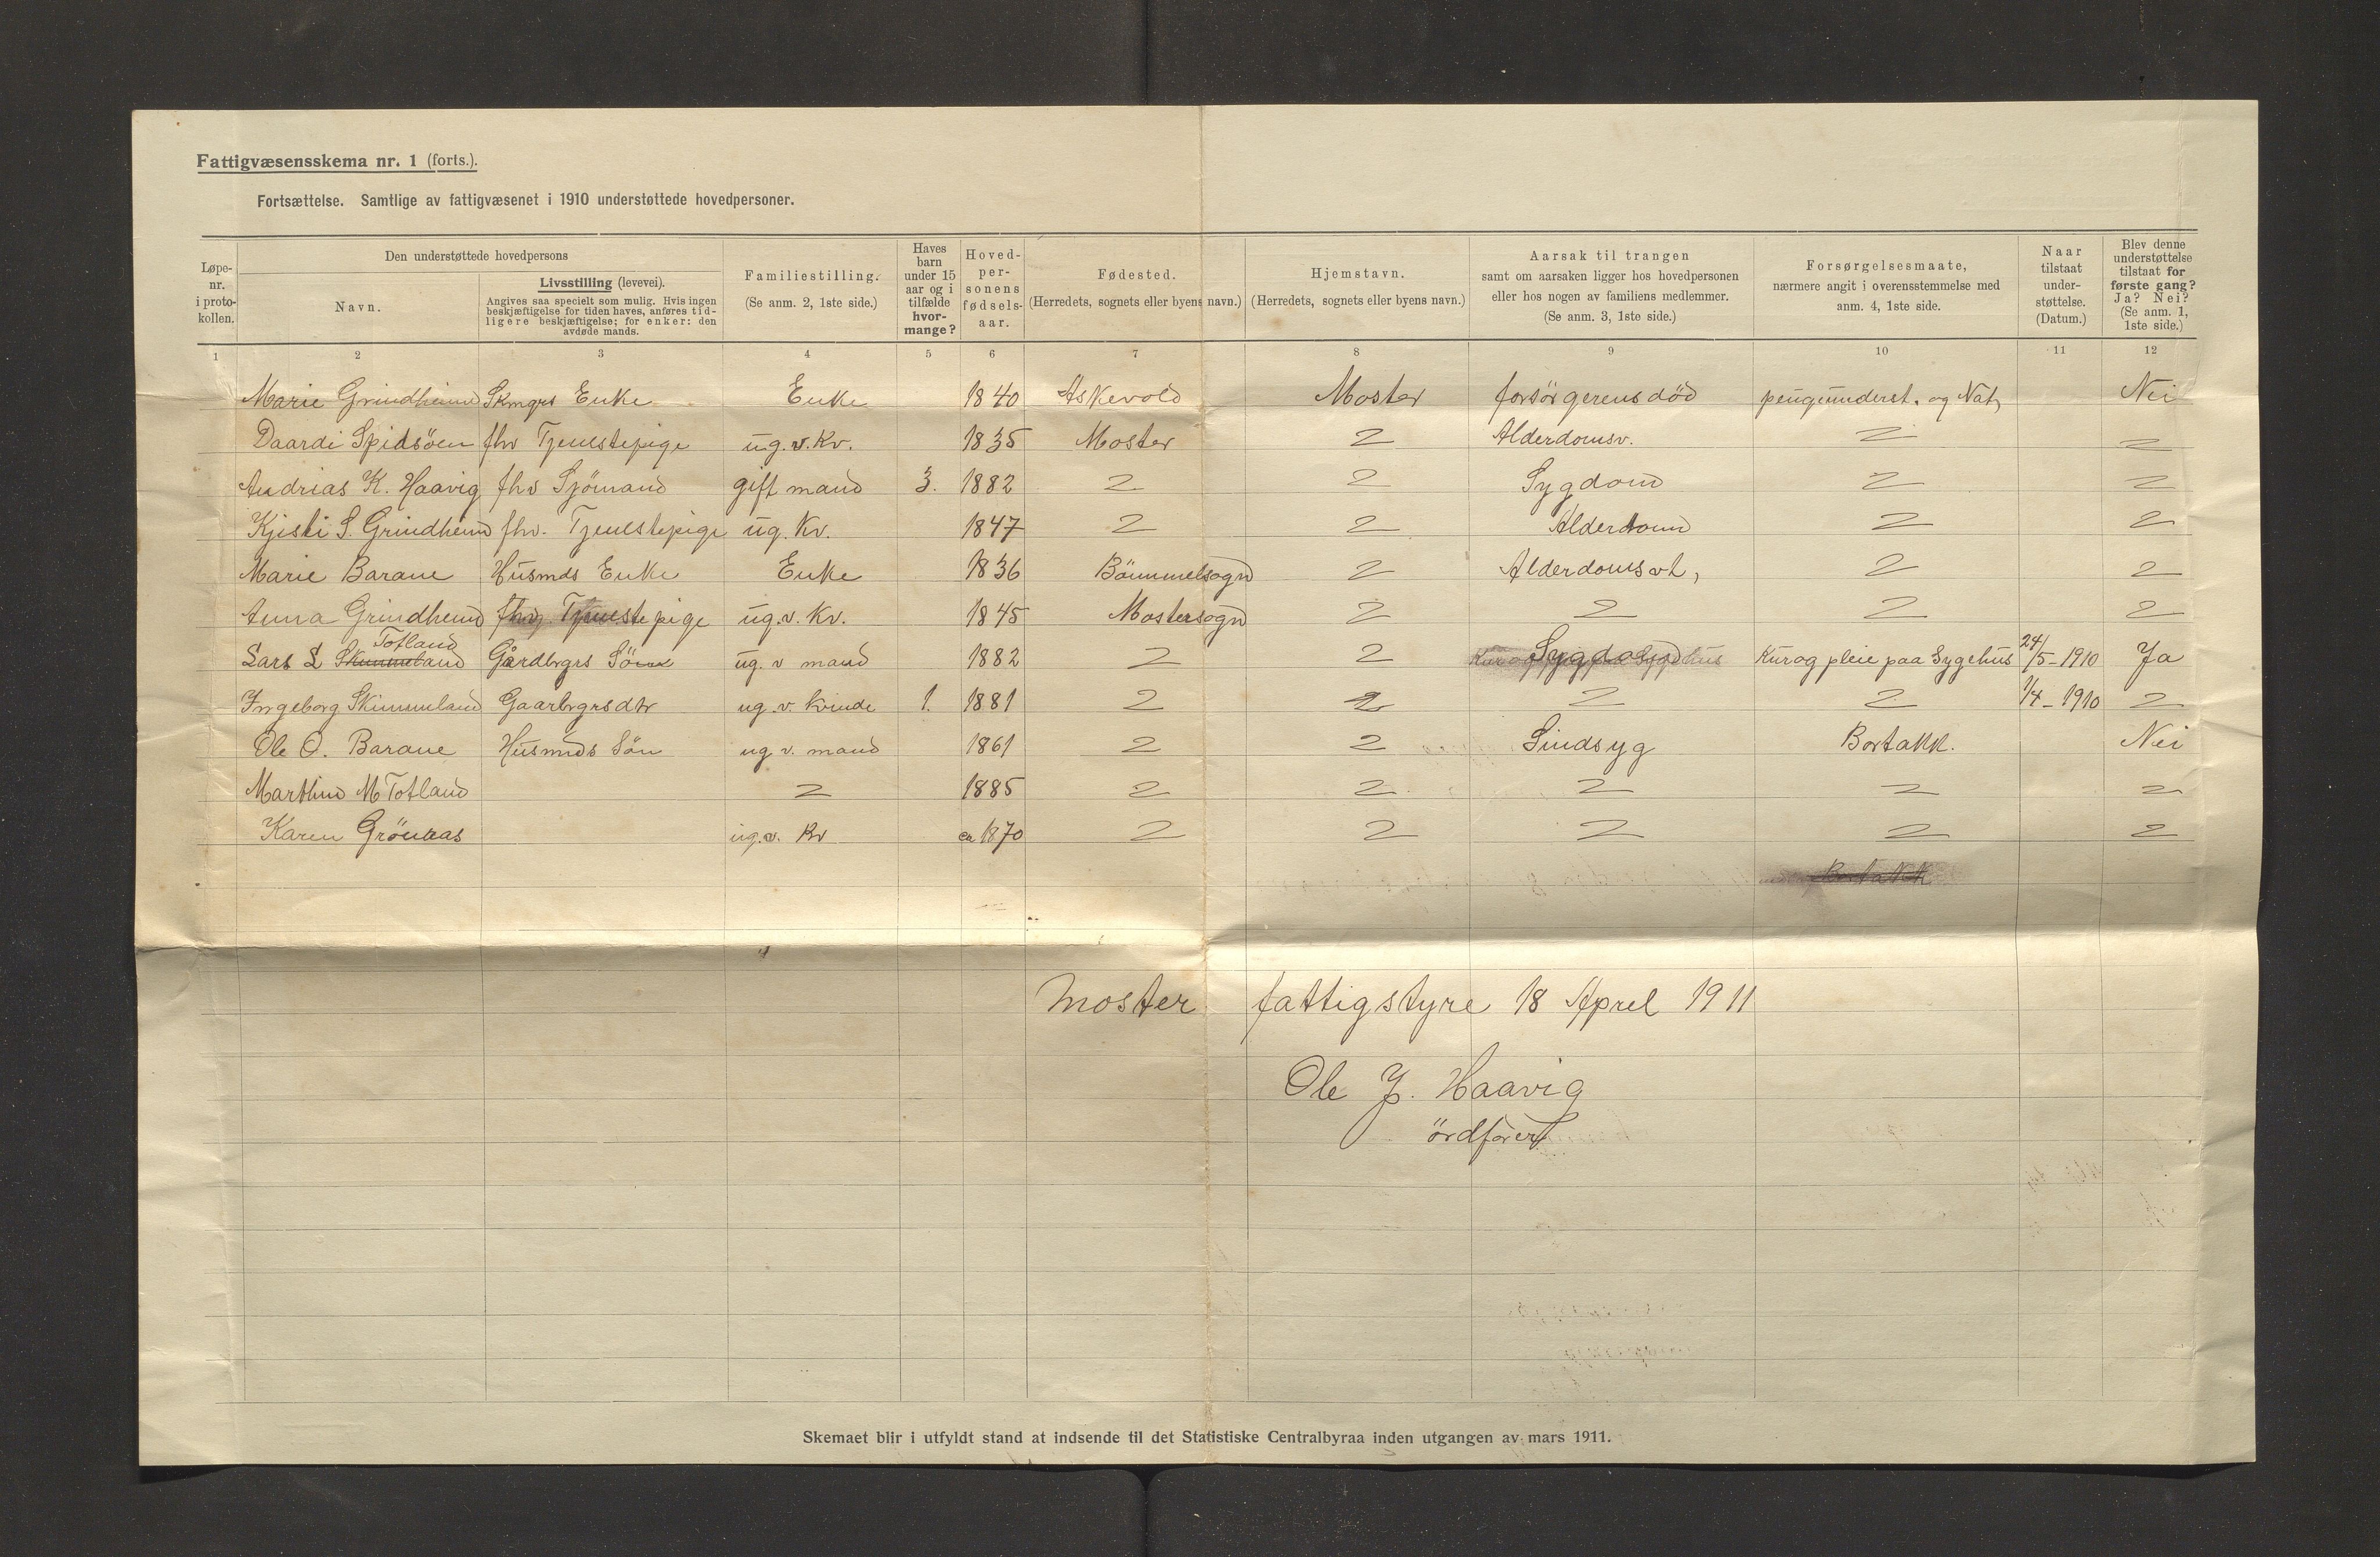 Fattigvæsensskema nr. 1 (forts.).
Fortsættelse. Samtlige av fattigvæsenet i 1910 understøttede hovedpersoner.
Løpe-nr. i proto-kollen.
Den understøttede hovedpersons
Navn.
Livsstilling (levevei).
Angives saa specielt som mulig. Hvis ingen beskjæftigelse for tiden haves, anføres tidligere beskjæftigelse; for enker: den avdøde mands.
Familiestilling.
(Se anm. 2, 1ste side.)
Haves barn under 15 aar og i tilfælde hvor-mange?
Hoved-per-sonens fødsels-aar.
Fødested.
(Herredets, sognets eller byens navn.)
Hjemstavn.
(Herredets, sognets eller byens navn.)
Aarsak til trangen
samt om aarsaken ligger hos hovedpersonen eller hos nogen av familiens medlemmer.
(Se anm. 3, 1ste side.)
Forsørgelsesmaate,
nærmere angit i overensstemmelse med anm. 4, 1ste side.
Naar tilstaat under-støttelse.
(Datum.)
Blev denne understøttelse tilstaat for første gang? Ja? Nei?
(Se anm. 1, 1ste side.)
1 2 3 4 5 6 7 8 9 10 11 12
Marie Grindheim Skmgrs Enke Enke 1840 Askevold Moster forsörgerens död pengeunderst. og Nat, Nei
Daardi Spidsöen fhv Tjenestepige ug. v. Kv. 1835 Moster 2 Alderdomsv. 2 2
Andrias K. Haavig fhv Sjömand gift mand 3. 1882 2 2 Sygdom 2 2
Kjisti S. Grindheim fhv. Tjenestepige ug. Kv. 1847 2 2 Alderdom 2 2
Marie Barane Husmds Enke Enke 1836 Bömmelsogn 2 Alderdomsvh, 2 2
Anna Grindheim fhv Tjenestepige ug. v. Kv. 1845 Mostersogn 2 2 2 2
Totland
Lars L Skimmeland Gårdbrgrs Sön ug. v mand 1882 2 2 Sygdom Kur og pleie paa Sygehus 24/5-1910 Ja
Ingeborg Skimmeland Gaarbrgrsdtr ug. v. kvinde 1. 1881 2 2 2 2 1/4-1910 2
Ole O. Barane Husmds Sön ug v. mand 1861 2 2 Sindsyg Bortakk. Nei
Marthin M Totland 2 1885 2 2 2 2 2
Karen Grönaas ug. v. Kv ca 1870 2 2 2 2 2
Bortakk
Moster fattigstyre 18 Aprel 1911
Ole J. Haavig
ördförer
Skemaet blir i utfyldt stand at indsende til det Statistiske Centralbyraa inden utgangen av mars 1911.